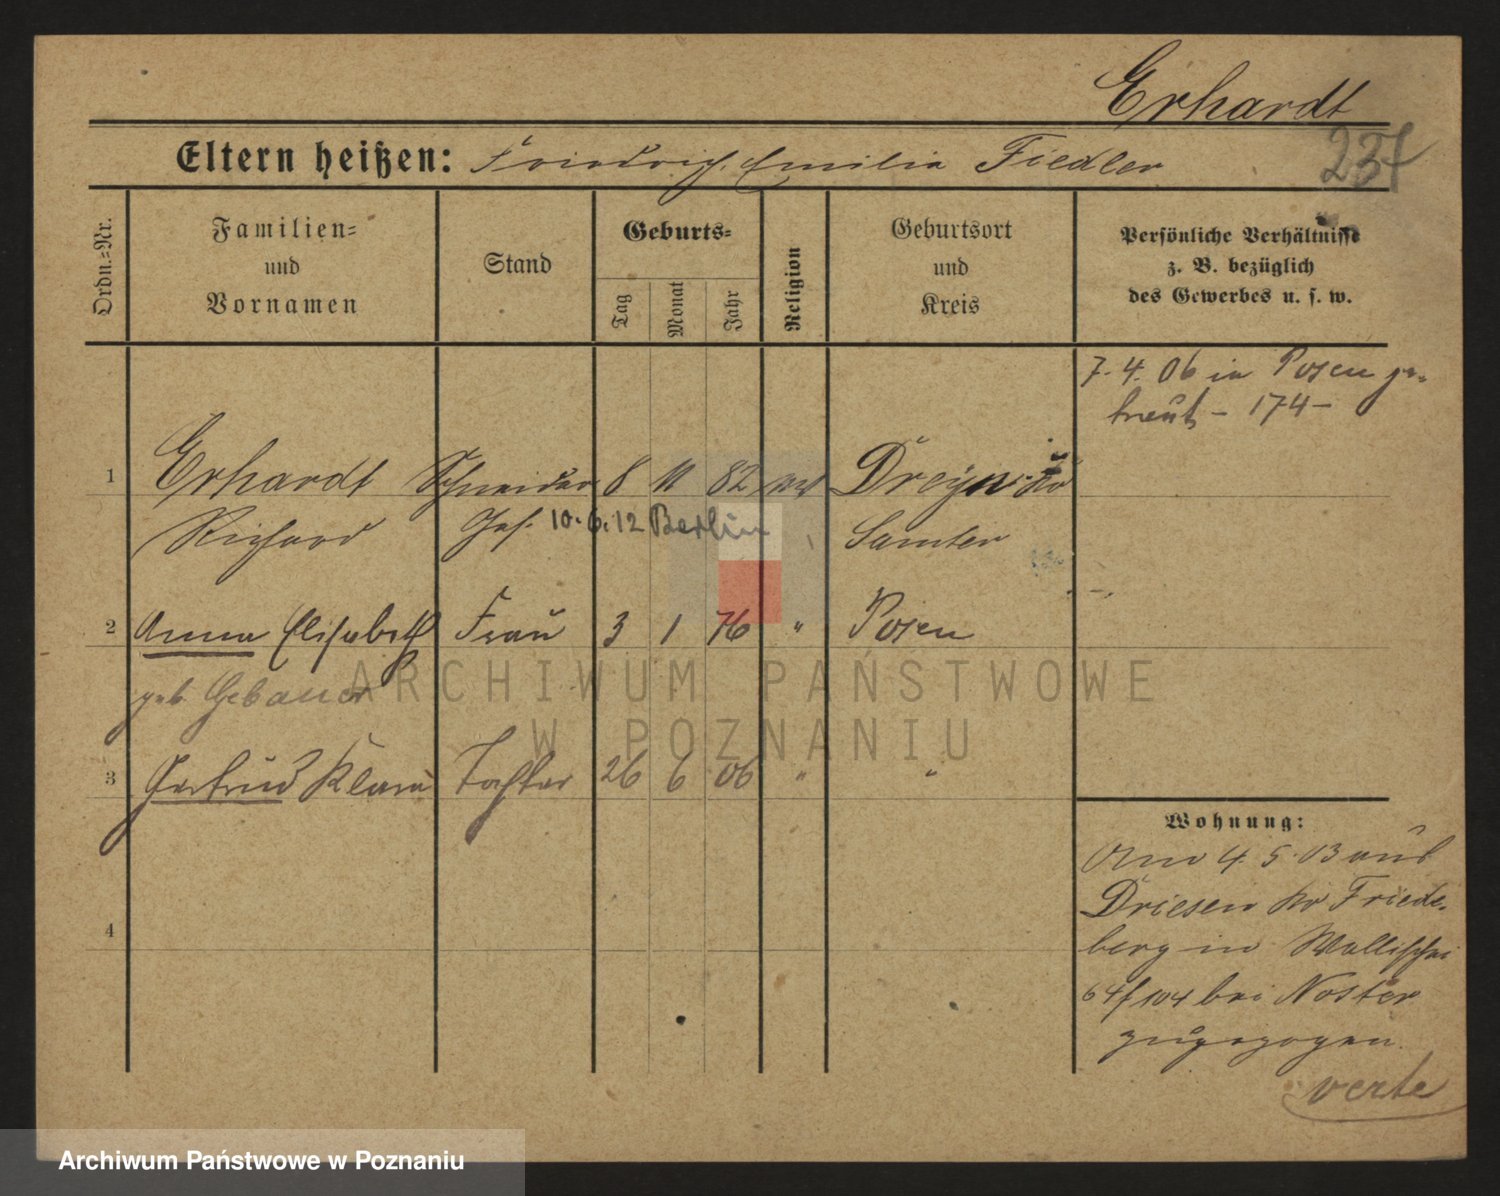 Erhardt
237
Eltern heißen: Friedrich, Emilia Fiedler
Ordn.-Nr.
Familien-
und
Vornamen
Stand
Geburts-
Tag
Monat
Jahr
Religion
Geburtsort
und
Kreis
Persönliche Verhältnisse
z. B. bezüglich
des Gewerbes u. s. w.
7. 4. 06 in Posen ge-
traut - 174 -
1 Erhardt Schneider 8 11 82
Richard Ges. 10.6.12 Berlin Samter
2 Anna Elisabeth Frau 3 1 76 " Posen
geb. Gebauer
3 Gertrud Klara Tochter 26 6 06 " "
4
Wohnung:
Am 4. 5. 03 aus
Driesen Kr Friede-
berg in Wallischei
64/104 bei Noster
zugezogen.
verte
ARCHIWUM PAŃSTWOWE
W POZNANIU
Archiwum Państwowe w Poznaniu